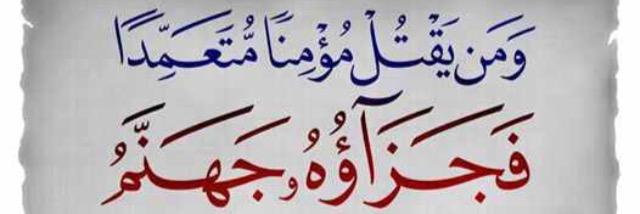 وَمَن يَقْتُلْ مُؤْمِنًا مُّتَعَمِّدًا
فَجَزَآؤُهُۥ جَهَنَّمُ